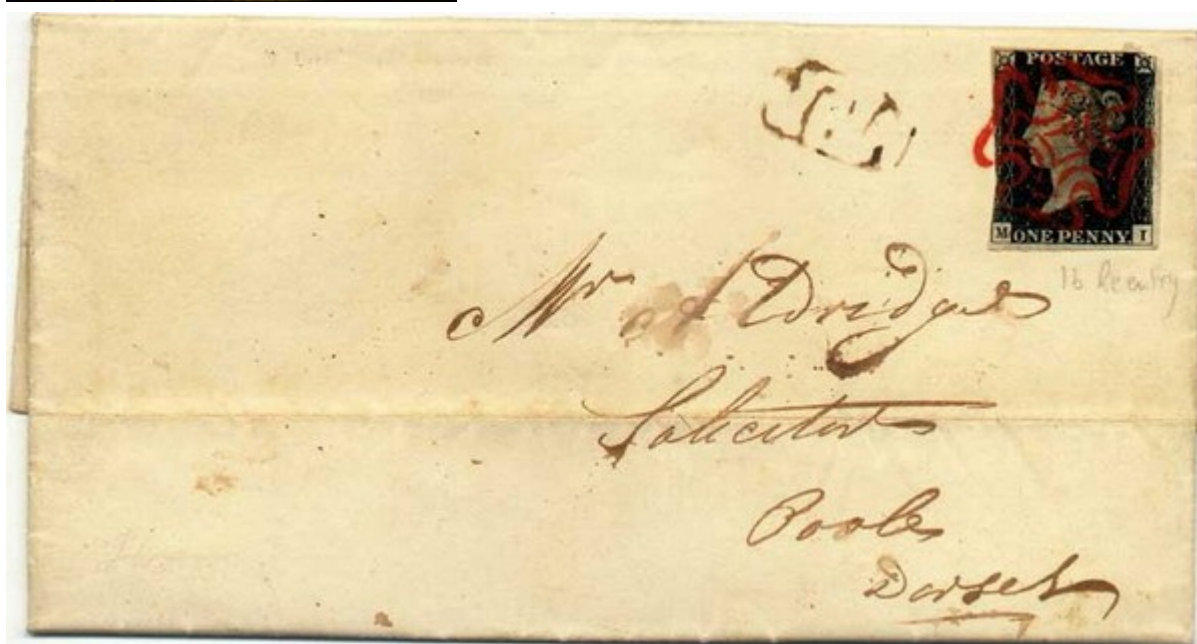 POSTAGE
M ONE PENNY. I
1b Reentry
Mr Aldridge
Solicitor
Poole
Dorset